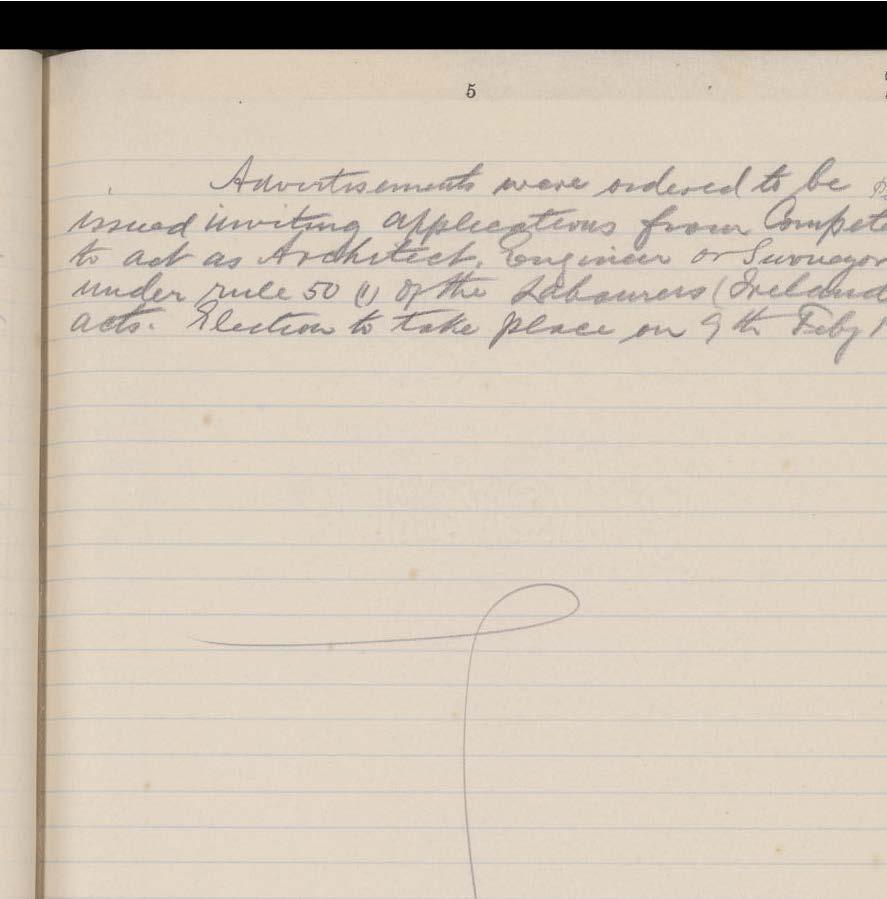 5
Advertisements were ordered to be
issued inviting applications from Compete
to act as Architect, Engineer or Surveyor
under rule 50 (1) of the Labourers (Ireland
acts. Election to take place on 9th Feby 1